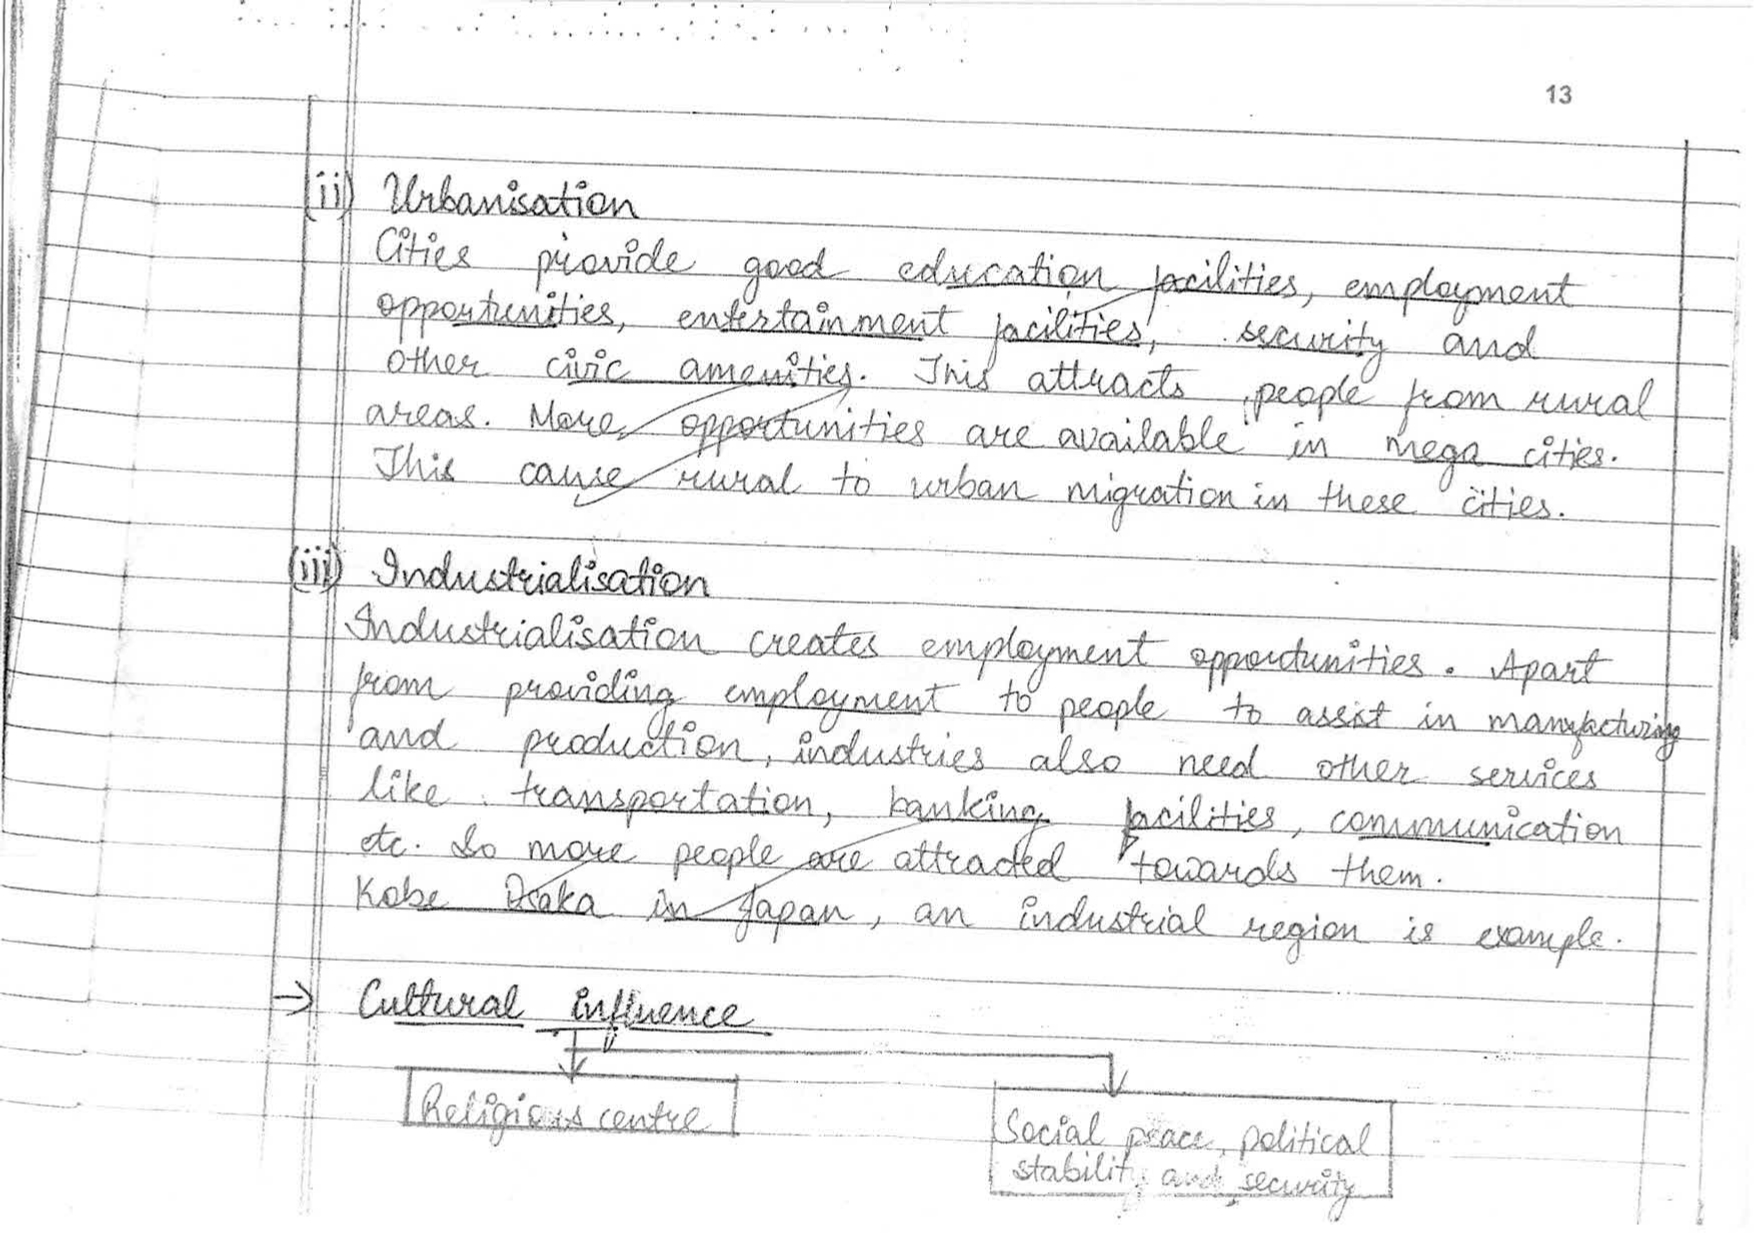 13
(ii) Urbanisation
Cities provide good education facilities, employment
opportunities, entertainment facilities, security and
other civic amenities. This attracts people from rural
areas. More opportunities are available in mega cities.
This cause rural to urban migration in these cities.
(iii) Industrialisation
Industrialisation creates employment opportunities. Apart
from providing employment to people to assist in manufacturing
and production, industries also need other services
like transportation, banking facilities, communication
etc. So more people are attracted towards them.
Kobe Osaka in Japan, an industrial region is example.
→ Cultural influence
Religious centre
Social peace, political
stability and security